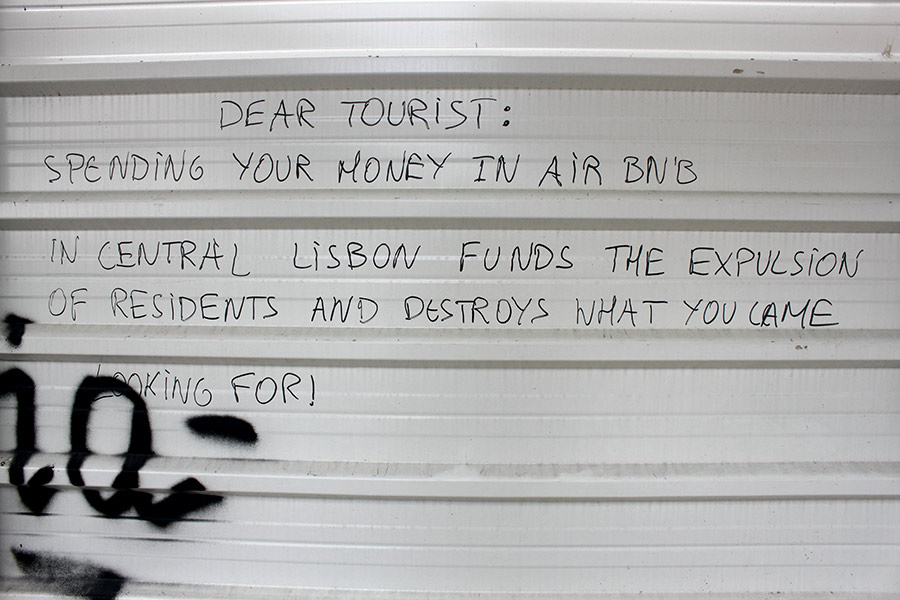 DEAR TOURIST:
SPENDING YOUR MONEY IN AIR BN'B
IN CENTRAL LISBON FUNDS THE EXPULSION
OF RESIDENTS AND DESTROYS WHAT YOU CAME
LOOKING FOR!